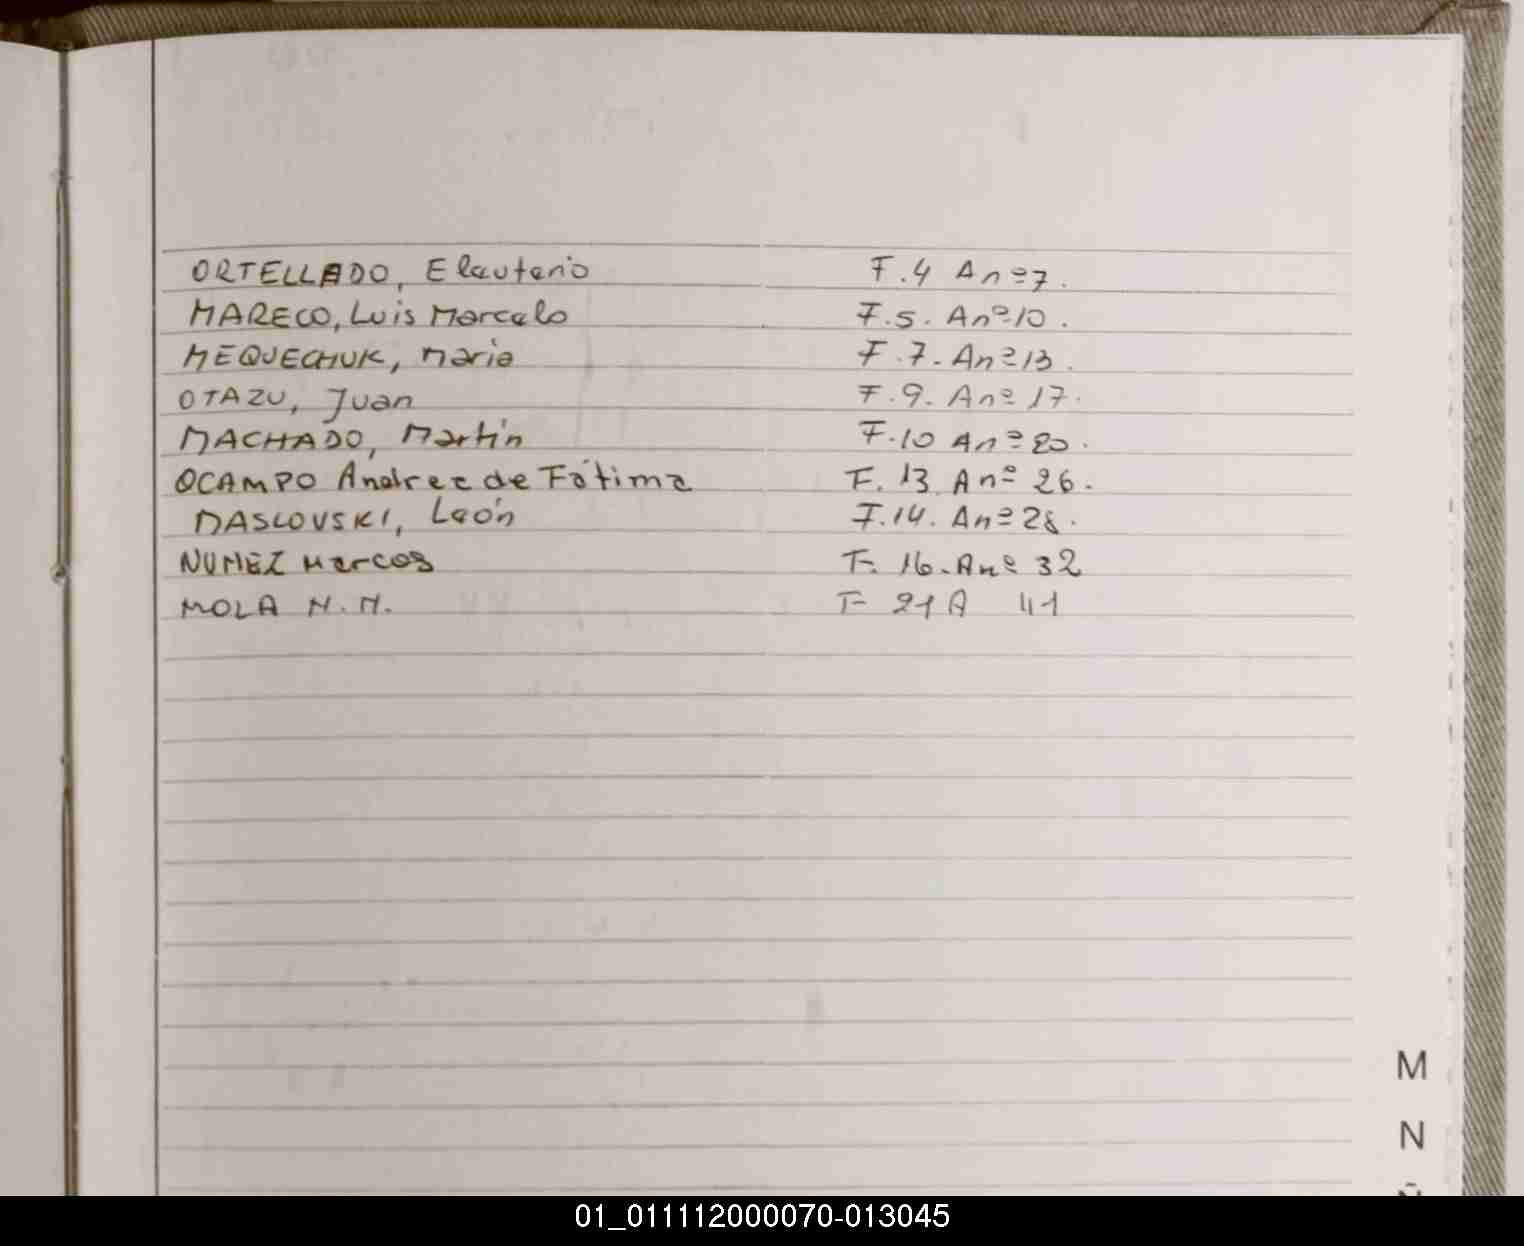 ORTELLADO, Eleuterio F.4 A nº7.
MARECO, Luis Marcelo F.5. Anº10.
MEQUECHUK, Maria F.7. Anº13.
OTAZU, Juan F.9. Anº 17.
MACHADO, Martín F.10 Anº20.
OCAMPO Andrea de Fátima F. 13. Anº 26.
MASLOVSKI, León F.14. Anº28.
NUMEZ Marcos F. 16. Anº 32
MOLA N.N. F 21 A 41
M
N
Ñ
01_011112000070-013045